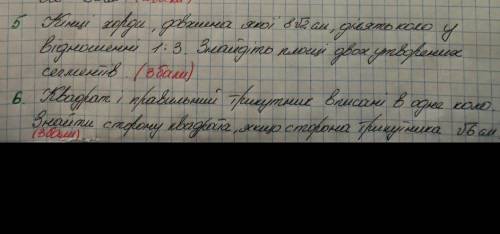 5. Кінці хорди, довжина якої 8√2 см, ділять коло у
відношенні 1:3. Знайдіть площі двох утворених
сегментів. (3 бали)
6. Квадрат і правильний трикутник вписані в одне коло.
Знайти сторону квадрата, якщо сторона трикутника √6 см
(3 бали)